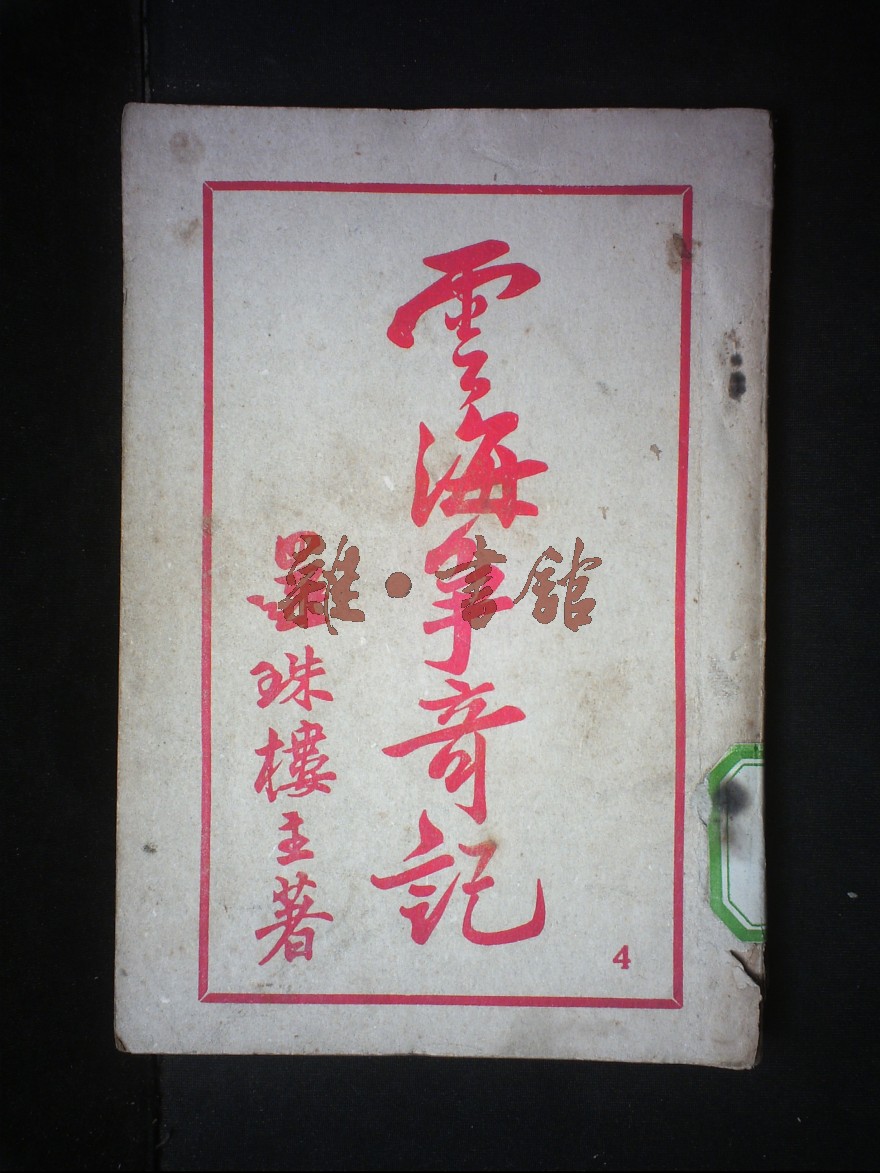 雲海爭奇記
還珠樓主著
4
雜·書舘